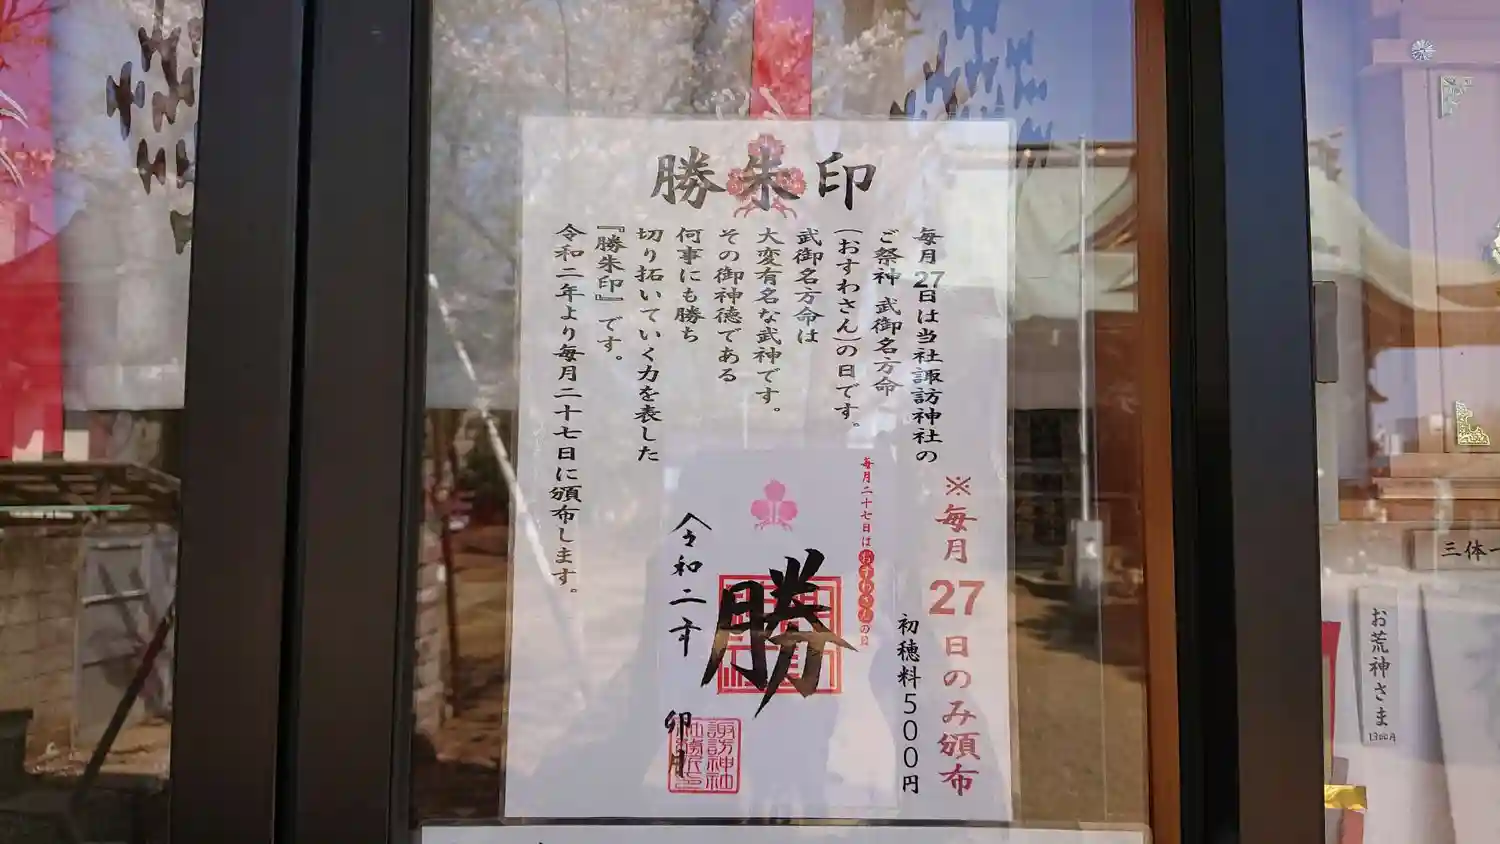 勝朱印
毎月27日は当社諏訪神社の
ご祭神 武御名方命
(おすわさん)の日です。
武御名方命は
大変有名な武神です。
その御神徳である
何事にも勝ち
切り拓いていく力を表した
『勝朱印』です。
令和二年より毎月二十七日に頒布します。
※毎月27日のみ頒布
初穂料500円
毎月二十七日はおすわさんの日
勝
令和二年
卯月
三体
お荒神さま
1300円